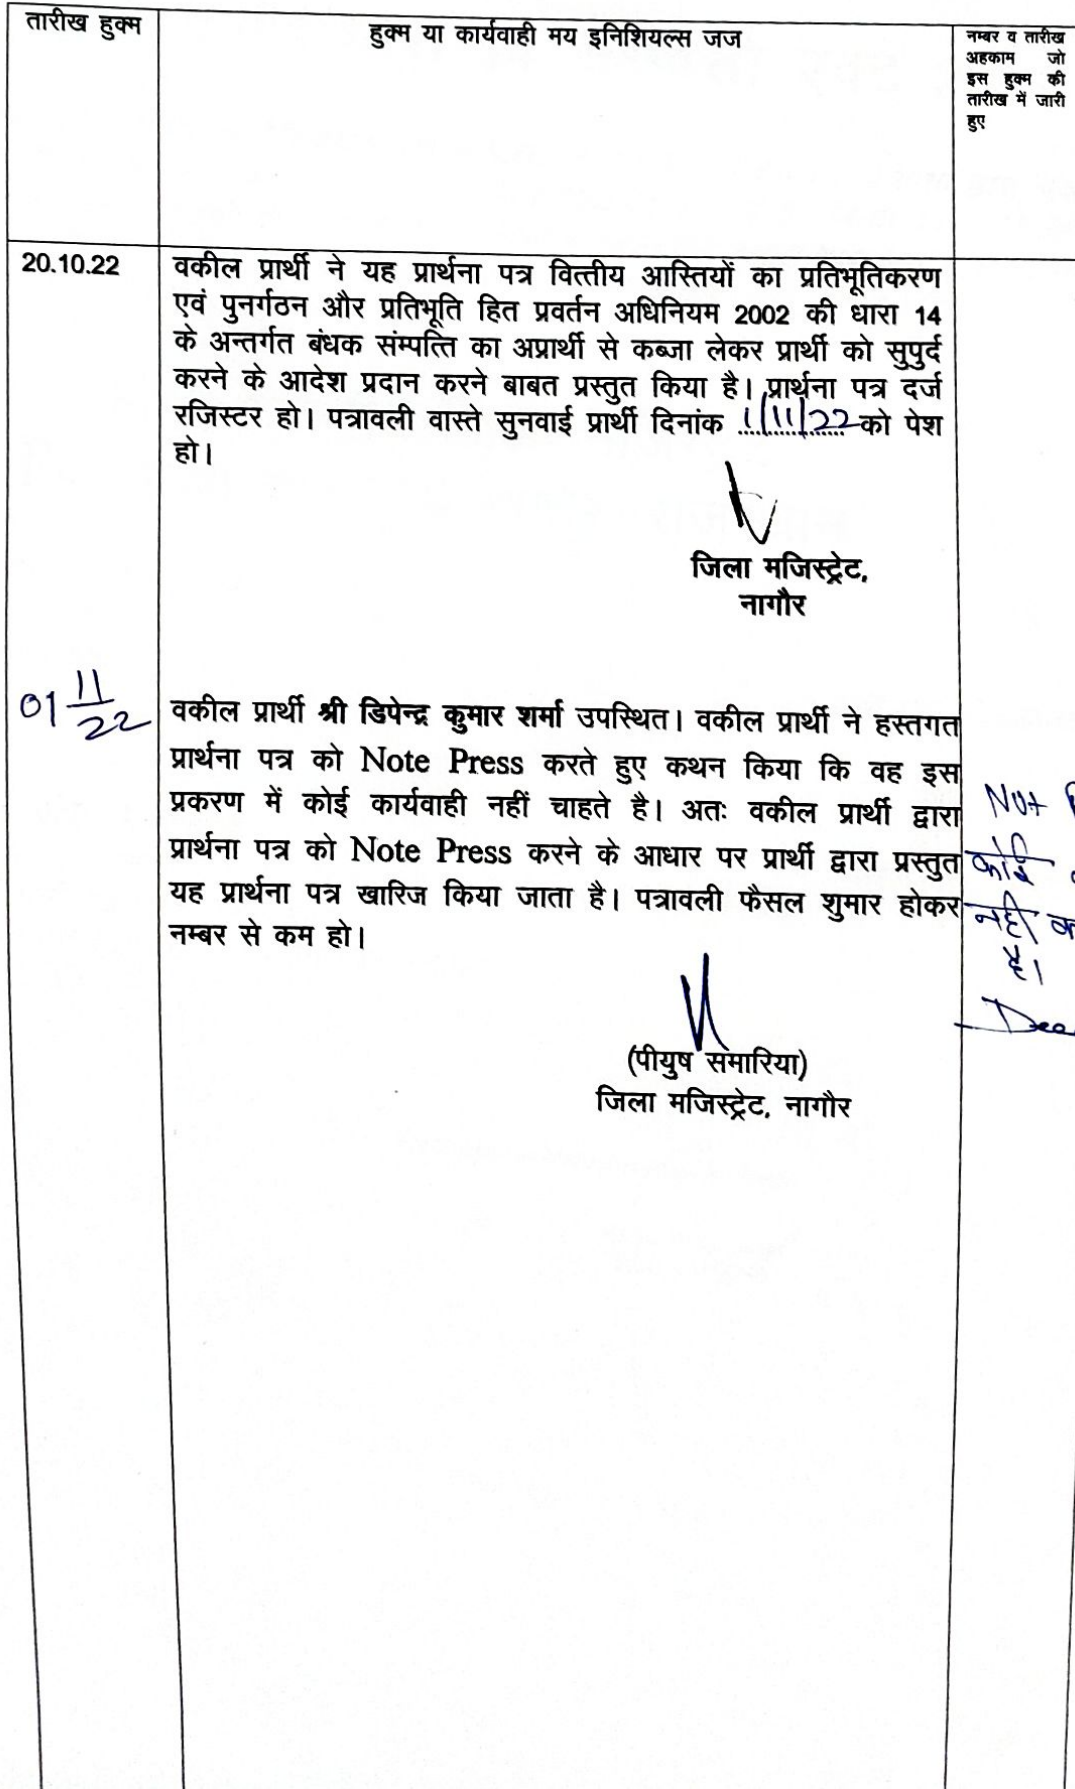 तारीख हुक्म
हुक्म या कार्यवाही मय इनिशियल्स जज
नम्बर व तारीख
अहकाम जो
इस हुक्म की
तारीख में जारी
हुए
20.10.22
वकील प्रार्थी ने यह प्रार्थना पत्र वित्तीय आस्तियों का प्रतिभूतिकरण
एवं पुनर्गठन और प्रतिभूति हित प्रवर्तन अधिनियम 2002 की धारा 14
के अन्तर्गत बंधक संम्पत्ति का अप्रार्थी से कब्जा लेकर प्रार्थी को सुपुर्द
करने के आदेश प्रदान करने बाबत प्रस्तुत किया है। प्रार्थना पत्र दर्ज
रजिस्टर हो। पत्रावली वास्ते सुनवाई प्रार्थी दिनांक 1/11/22 को पेश
हो।
जिला मजिस्ट्रेट,
नागौर
01 11/22
वकील प्रार्थी श्री डिपेन्द्र कुमार शर्मा उपस्थित। वकील प्रार्थी ने हस्तगत
प्रार्थना पत्र को Note Press करते हुए कथन किया कि वह इस
प्रकरण में कोई कार्यवाही नहीं चाहते है। अतः वकील प्रार्थी द्वारा
प्रार्थना पत्र को Note Press करने के आधार पर प्रार्थी द्वारा प्रस्तुत
यह प्रार्थना पत्र खारिज किया जाता है। पत्रावली फैसल शुमार होकर
नम्बर से कम हो।
Not
कोई
नही
है।
(पीयुष समारिया)
जिला मजिस्ट्रेट, नागौर